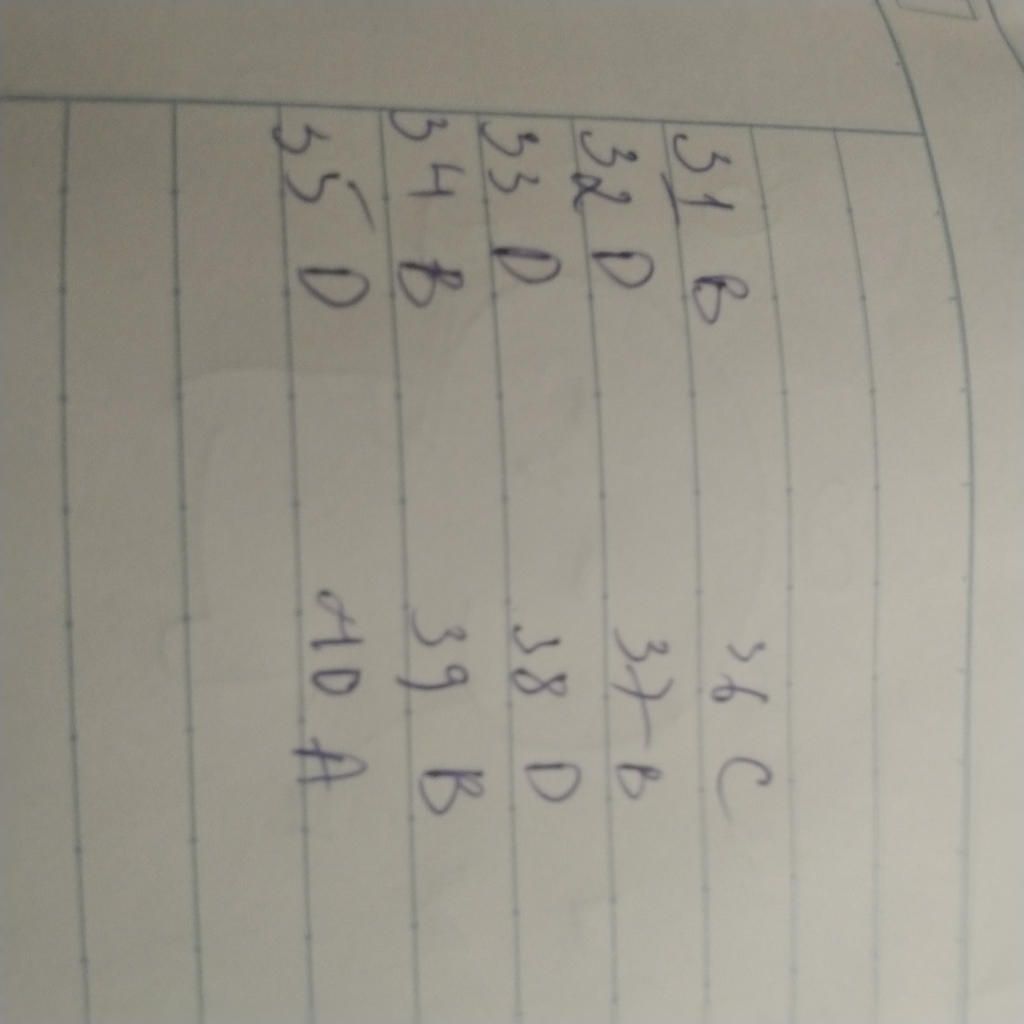 31 B 36 C
32 D 37 B
33 D 38 D
34 B 39 B
35 D 40 A